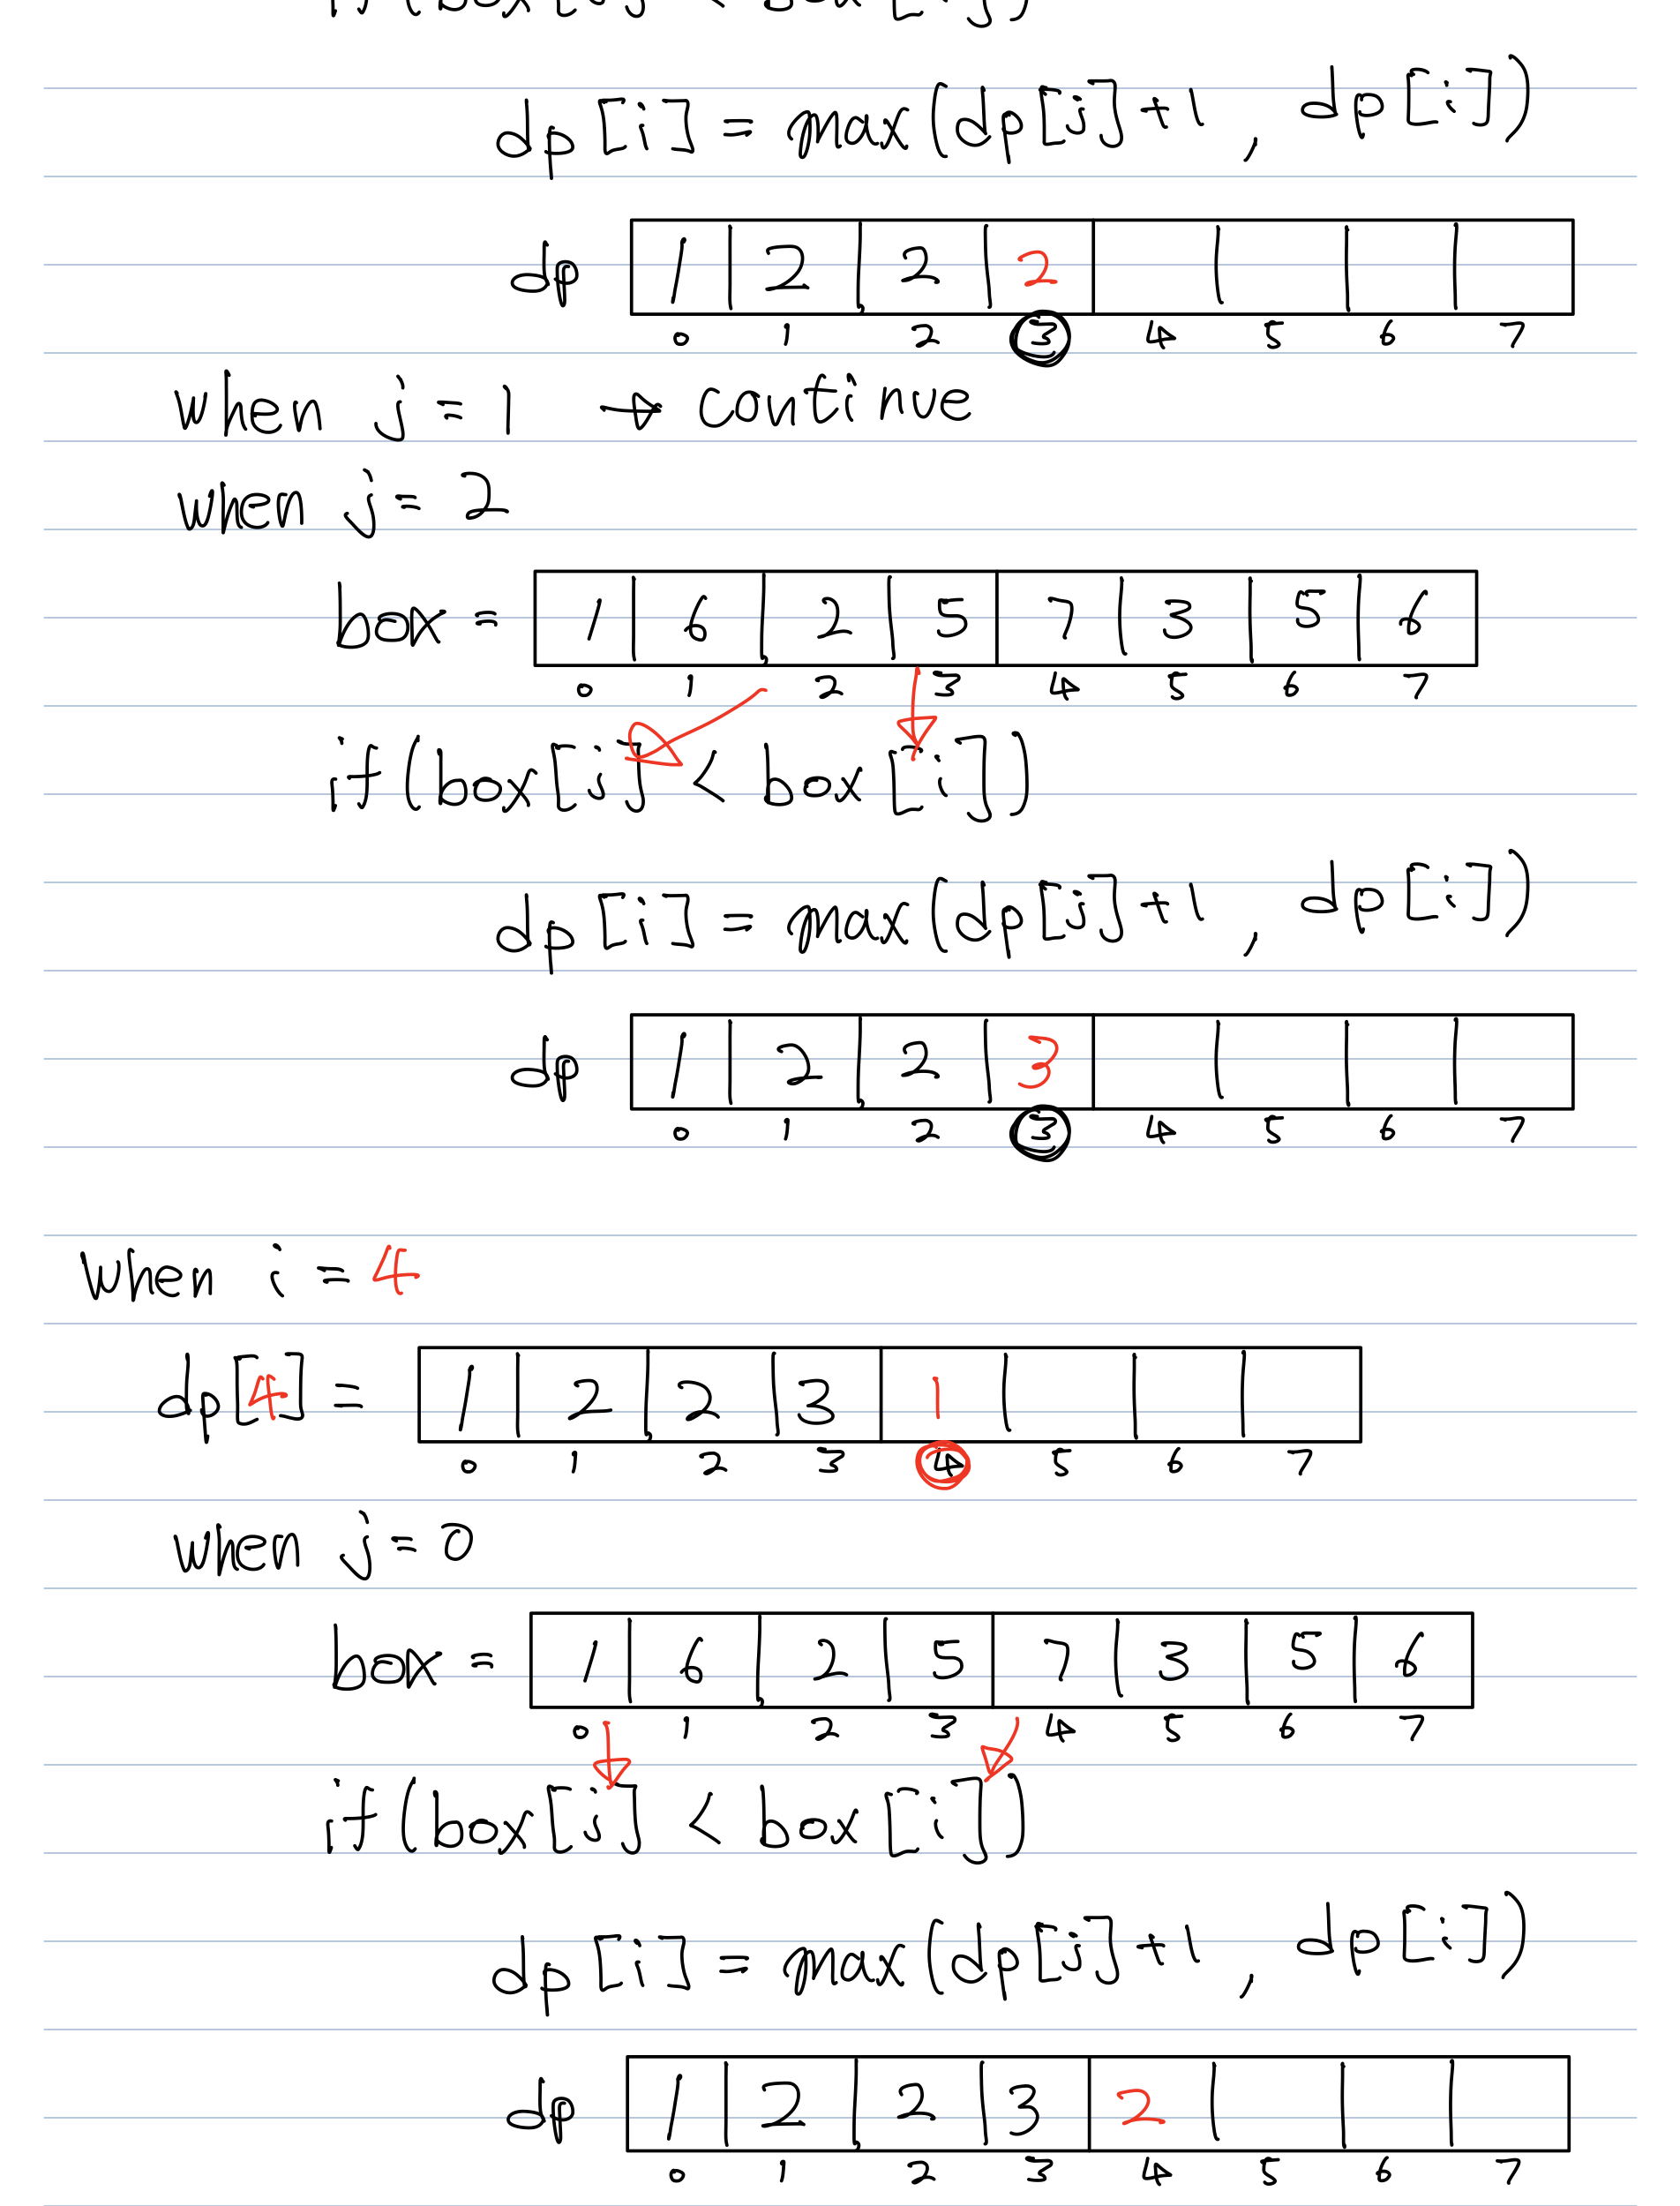 if(box[j] < box[i])
dp[i] = max(dp[j]+1 , dp[i])
dp 1 2 2 2
0 1 2 3 4 5 6 7
when j = 1 → continue
when j = 2
box = 1 6 2 5 7 3 5 6
0 1 2 3 4 5 6 7
if(box[j] < box[i])
dp[i] = max(dp[j]+1 , dp[i])
dp 1 2 2 3
0 1 2 3 4 5 6 7
when i = 4
dp[4] = 1 2 2 3 1
0 1 2 3 4 5 6 7
when j = 0
box = 1 6 2 5 7 3 5 6
0 1 2 3 4 5 6 7
if(box[j] < box[i])
dp[i] = max(dp[j]+1 , dp[i])
dp 1 2 2 3 2
0 1 2 3 4 5 6 7